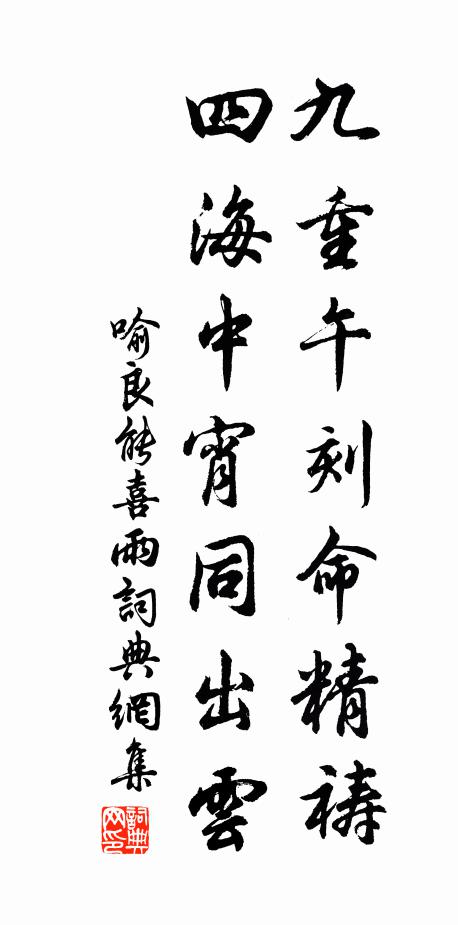 九重午刻命精祷
四海中宵同出雲
喻良能喜雨詞典網集
詞典网印